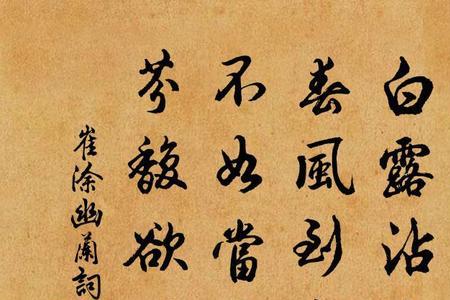 白露沾
春風到
不如當
芬馥欲
崔涂幽蘭詞